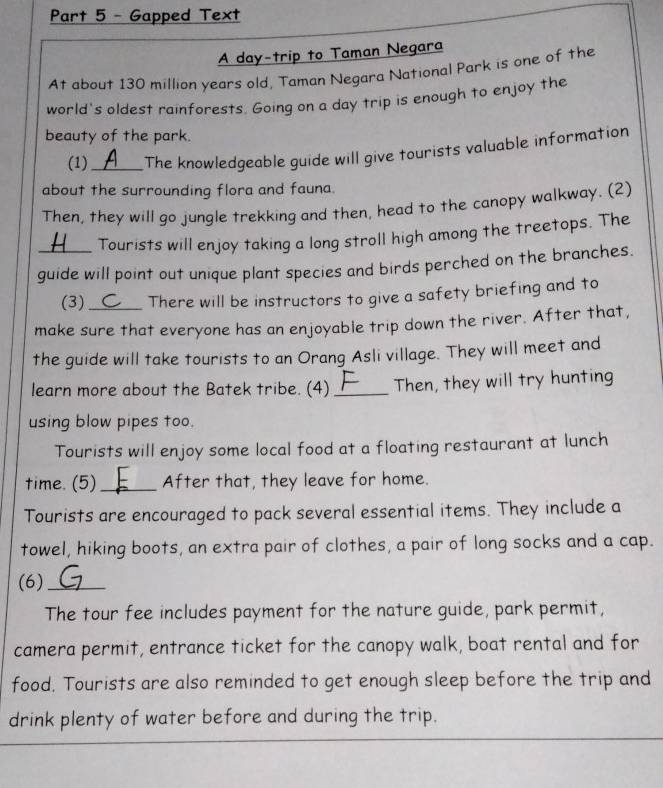 Part 5 - Gapped Text
A day-trip to Taman Negara
At about 130 million years old, Taman Negara National Park is one of the
world's oldest rainforests. Going on a day trip is enough to enjoy the
beauty of the park.
(1) A The knowledgeable guide will give tourists valuable information
about the surrounding flora and fauna.
Then, they will go jungle trekking and then, head to the canopy walkway. (2)
H Tourists will enjoy taking a long stroll high among the treetops. The
guide will point out unique plant species and birds perched on the branches.
(3) C There will be instructors to give a safety briefing and to
make sure that everyone has an enjoyable trip down the river. After that,
the guide will take tourists to an Orang Asli village. They will meet and
learn more about the Batek tribe. (4) F Then, they will try hunting
using blow pipes too.
Tourists will enjoy some local food at a floating restaurant at lunch
time. (5) E After that, they leave for home.
Tourists are encouraged to pack several essential items. They include a
towel, hiking boots, an extra pair of clothes, a pair of long socks and a cap.
(6) G
The tour fee includes payment for the nature guide, park permit,
camera permit, entrance ticket for the canopy walk, boat rental and for
food. Tourists are also reminded to get enough sleep before the trip and
drink plenty of water before and during the trip.